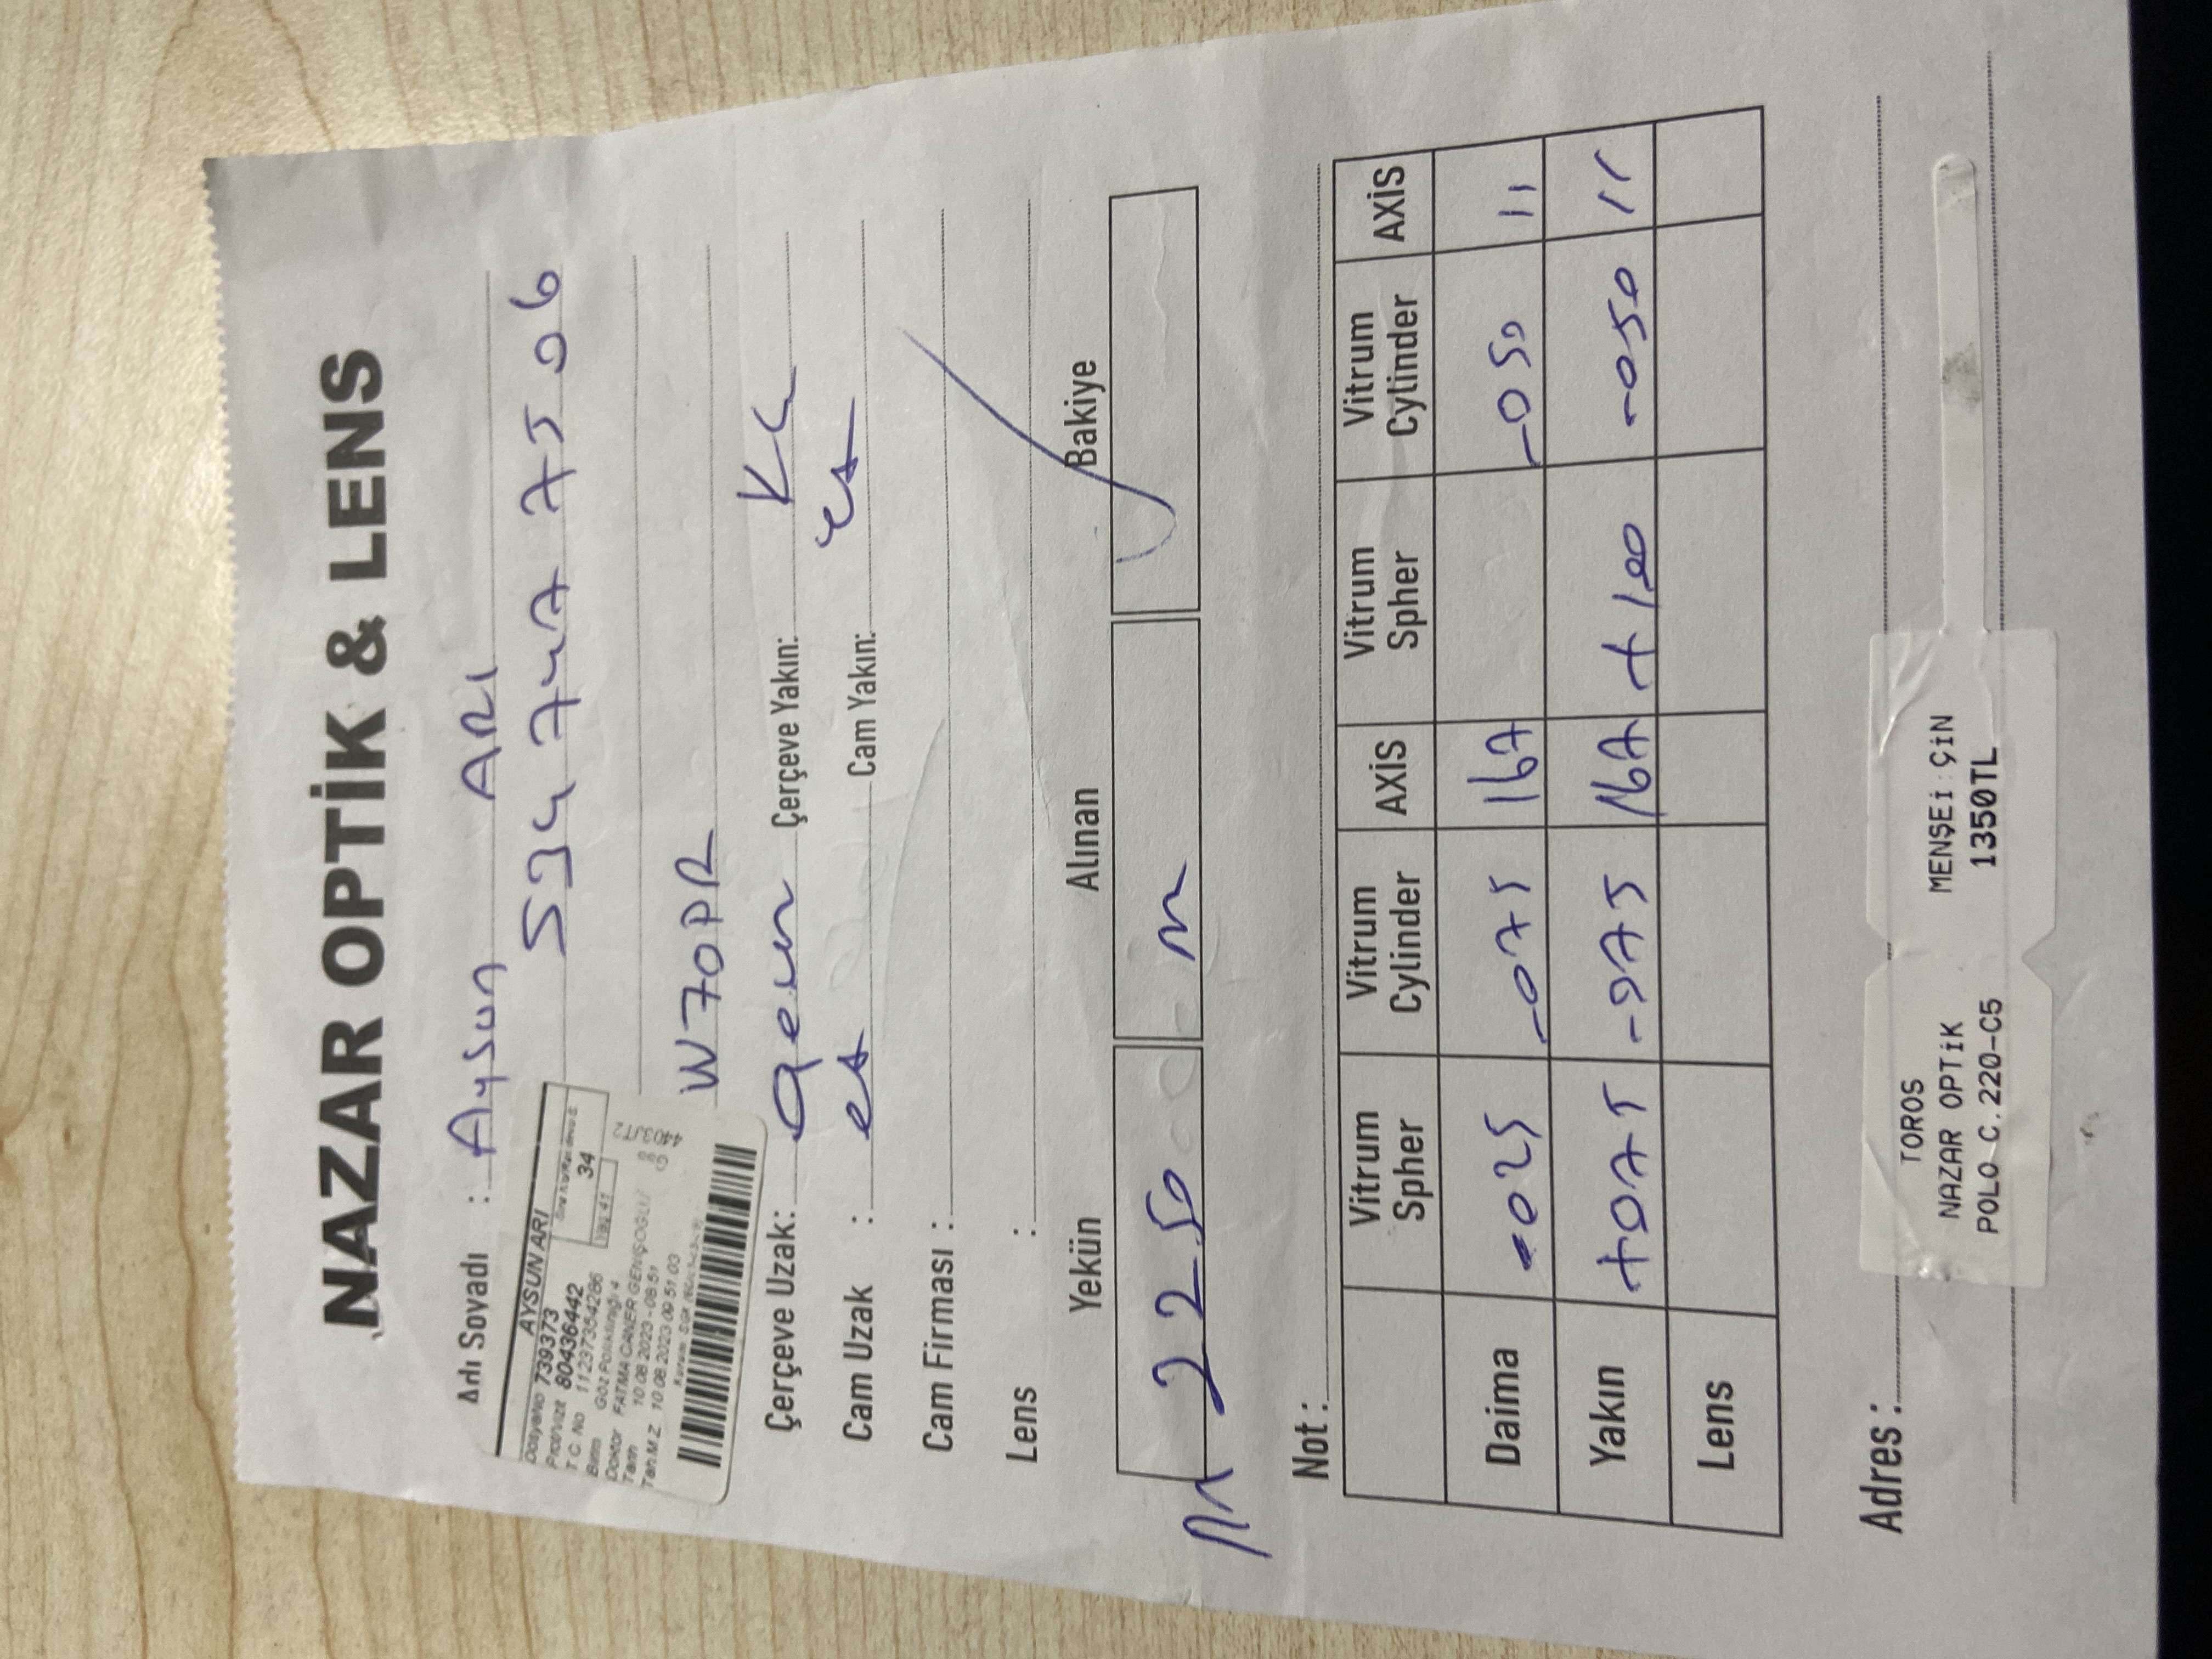 NAZAR OPTİK & LENS
Adı Soyadı : Aysun ARI
534 747 75 06
AYSUN ARI
DosyaNo 739373
Prot/Vizit 80436442
34
T.C. No 11237354286
Yaş 41
Birim Göz Polikliniği 4
Doktor FATMA CANER GENİŞOĞLU
Tarih 10.08.2023 - 08:51
Tah.M.Z. 10.08.2023 09:51:03
4403JT2
W70PR
Çerçeve Uzak: Çerçeve Yakın:
Cam Uzak : Cam Yakın:
Cam Firması :
Lens :
Yekün Alınan Bakiye
2250
Not :
Vitrum Spher Vitrum Cylinder AXİS Vitrum Spher Vitrum Cylinder AXİS
Daima -025 -075 167 -050 11
Yakın +075 -075 167 +100 -050 11
Lens
Adres :
TOROS
NAZAR OPTİK
POLO C.220-C5
MENŞEİ ÇİN
1350TL